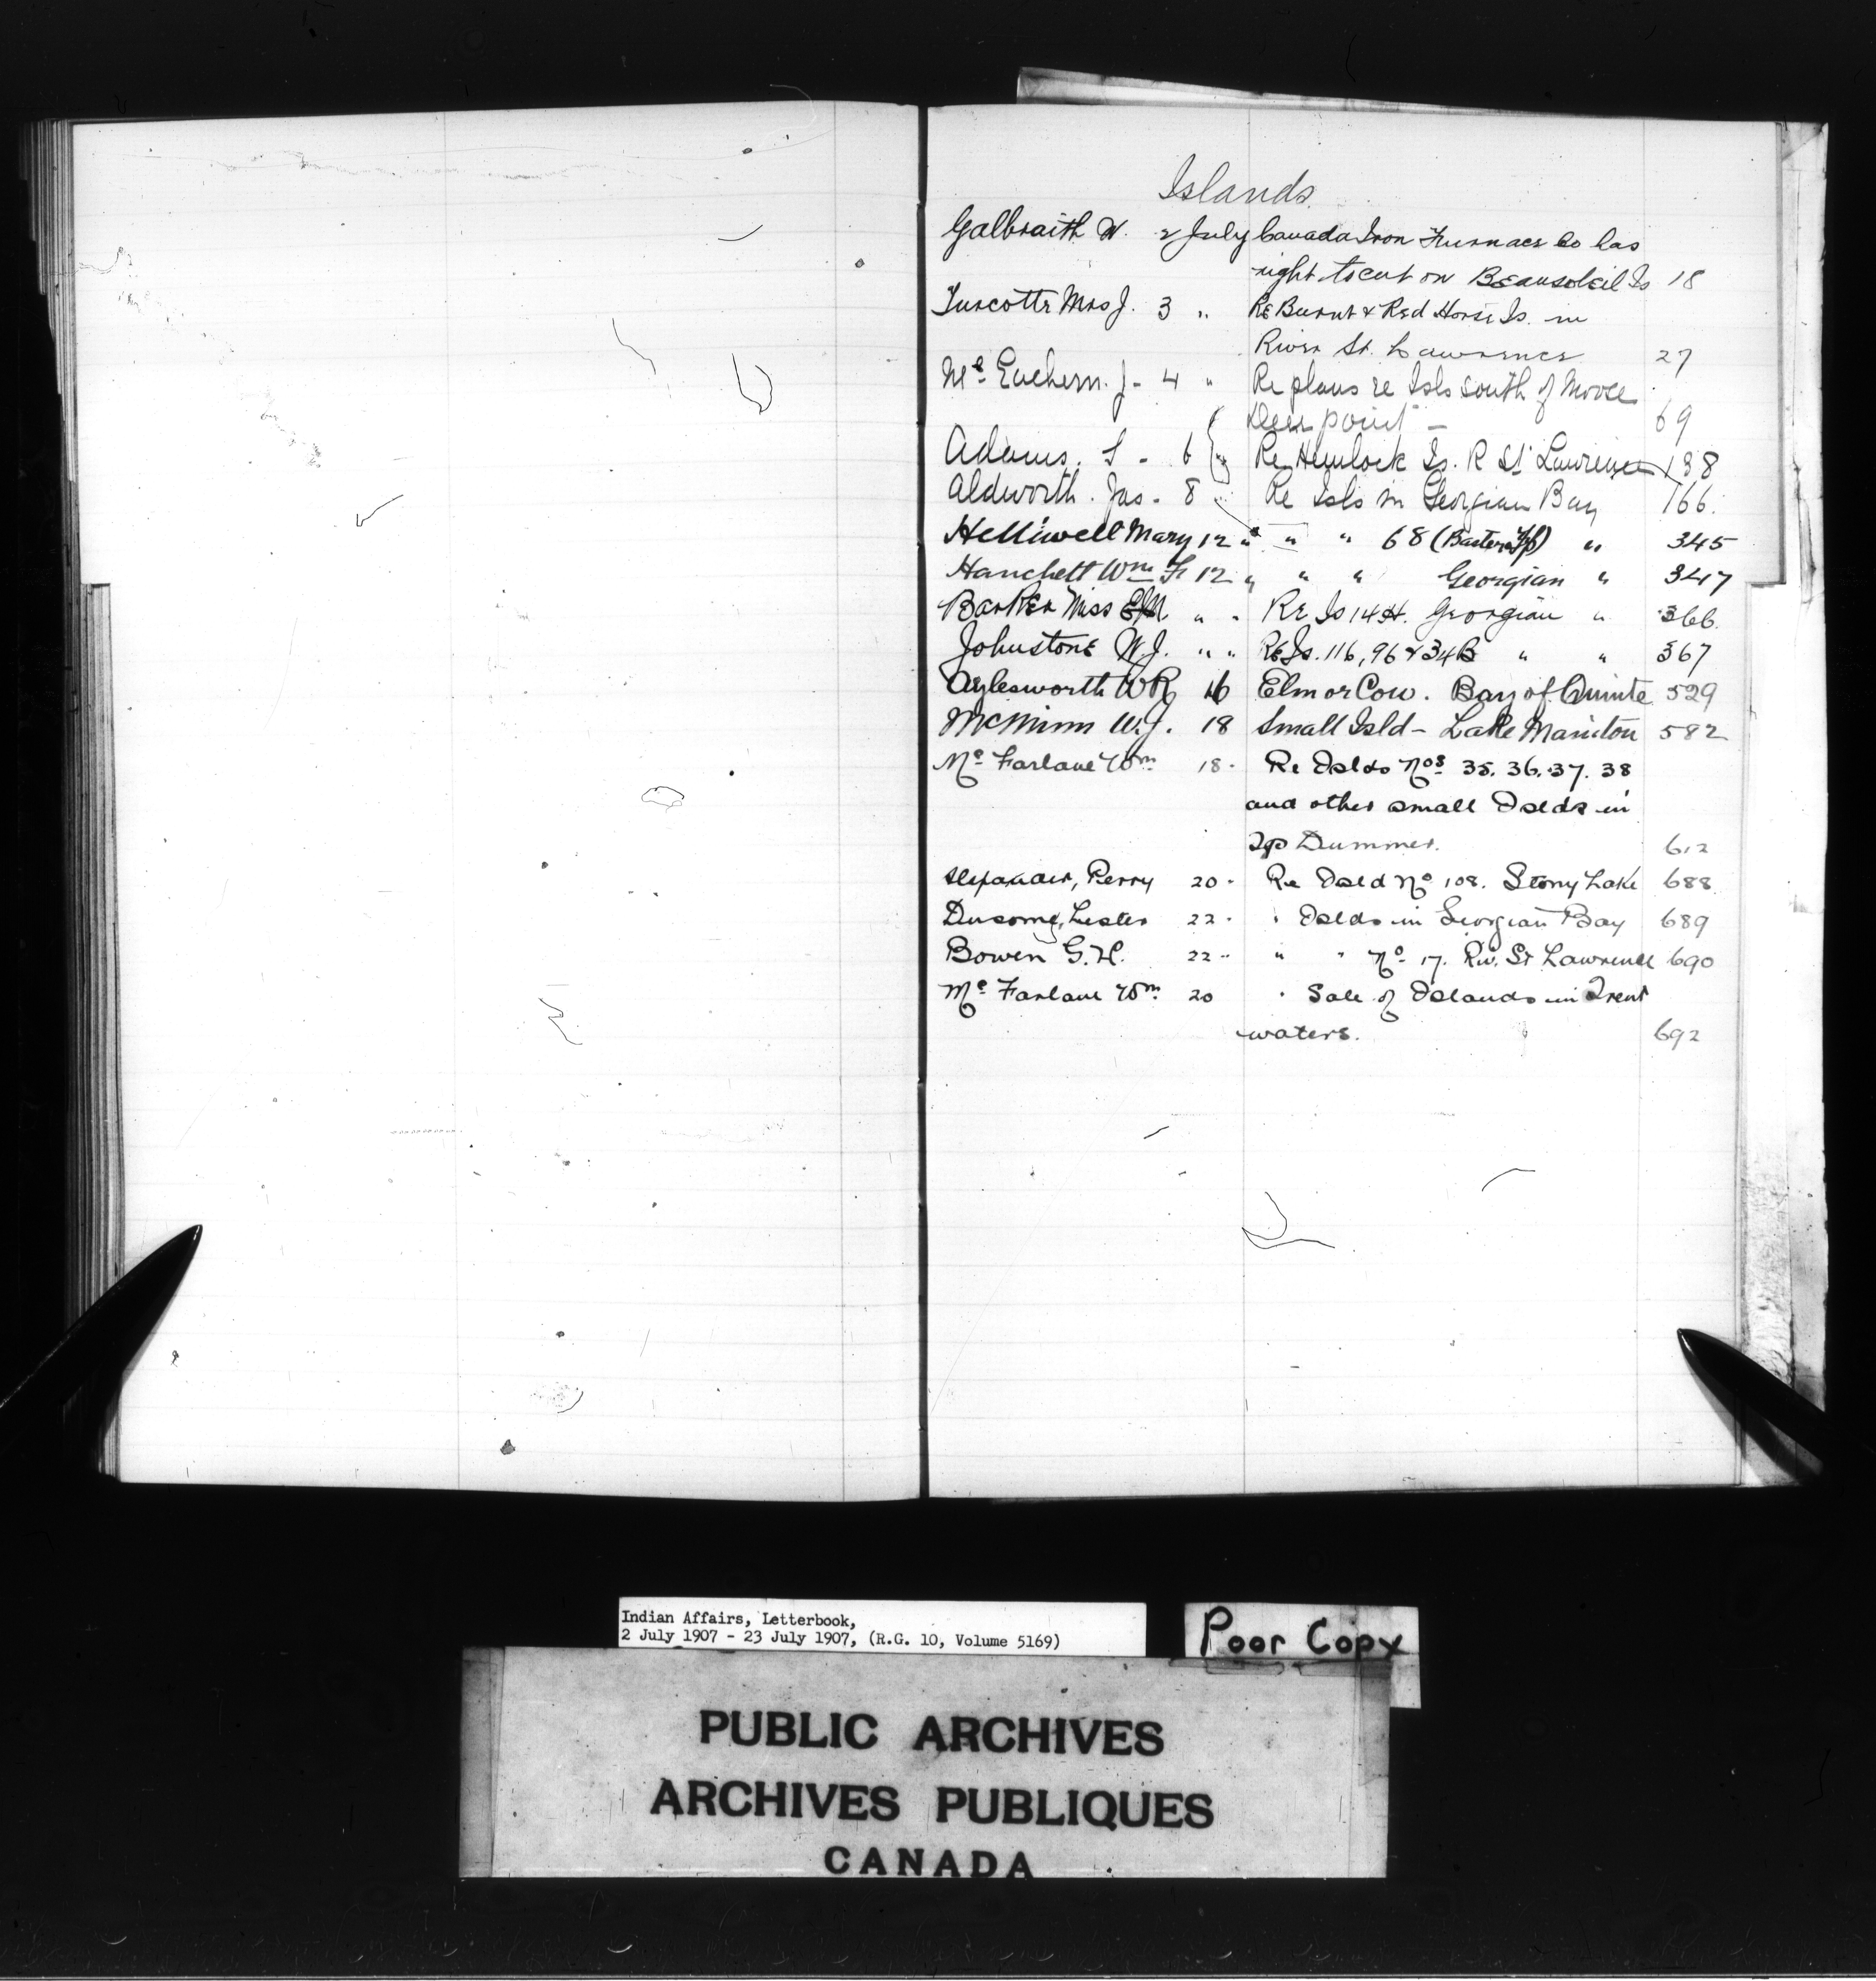 Islands.
Galbraith W. 2 July Canada Iron Furnace Co has
right to cut on Beausoleil Is 18
Turcotte Mrs J. 3 " Re Burnt & Red Horse Is. in
River St. Lawrence 27
Mc Eachern. J - 4 " Re plans re Isls south of Moose
Deer point - 69
Adams. S - 6 " Re Hemlock Is. R St Lawrence 138
Aldworth. Jas - 8 " Re Isls in Georgian Bay 166.
Helliwell Mary 12 " " " 68 (Baxter Tp) " 345
Hanchett Wm F 12 " " " Georgian " 347
Barker Miss EM " " Re Is 144. Georgian " 366.
Johnstone W.J. " " Re Is. 116, 96 & 34B " " 367
Aylesworth WR 16 Elm or Cow. Bay of Quinte 529
McMinn W.J. 18 Small Isld - Lake Manitou 582
Mc Farlane Wm 18 - Re Islds Nos 35. 36. 37. 38
and other small Islds in
Tp Dummer. 612
Perry 20 - Re Isld No 108. Stony Lake 688
Dusome, Lester 22 - " Islds in Georgian Bay 689
Bowen G.H. 22 - " " No 17. Riv. St Lawrence 690
Mc Farlane Wm 20 " Sale of Islands in Trent
waters. 692
Indian Affairs, Letterbook,
2 July 1907 - 23 July 1907, (R.G. 10, Volume 5169)
Poor Copy
PUBLIC ARCHIVES
ARCHIVES PUBLIQUES
CANADA